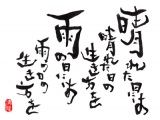 晴れた日は
晴れた日の
生き方を
雨の日は
雨の日の
生き方を